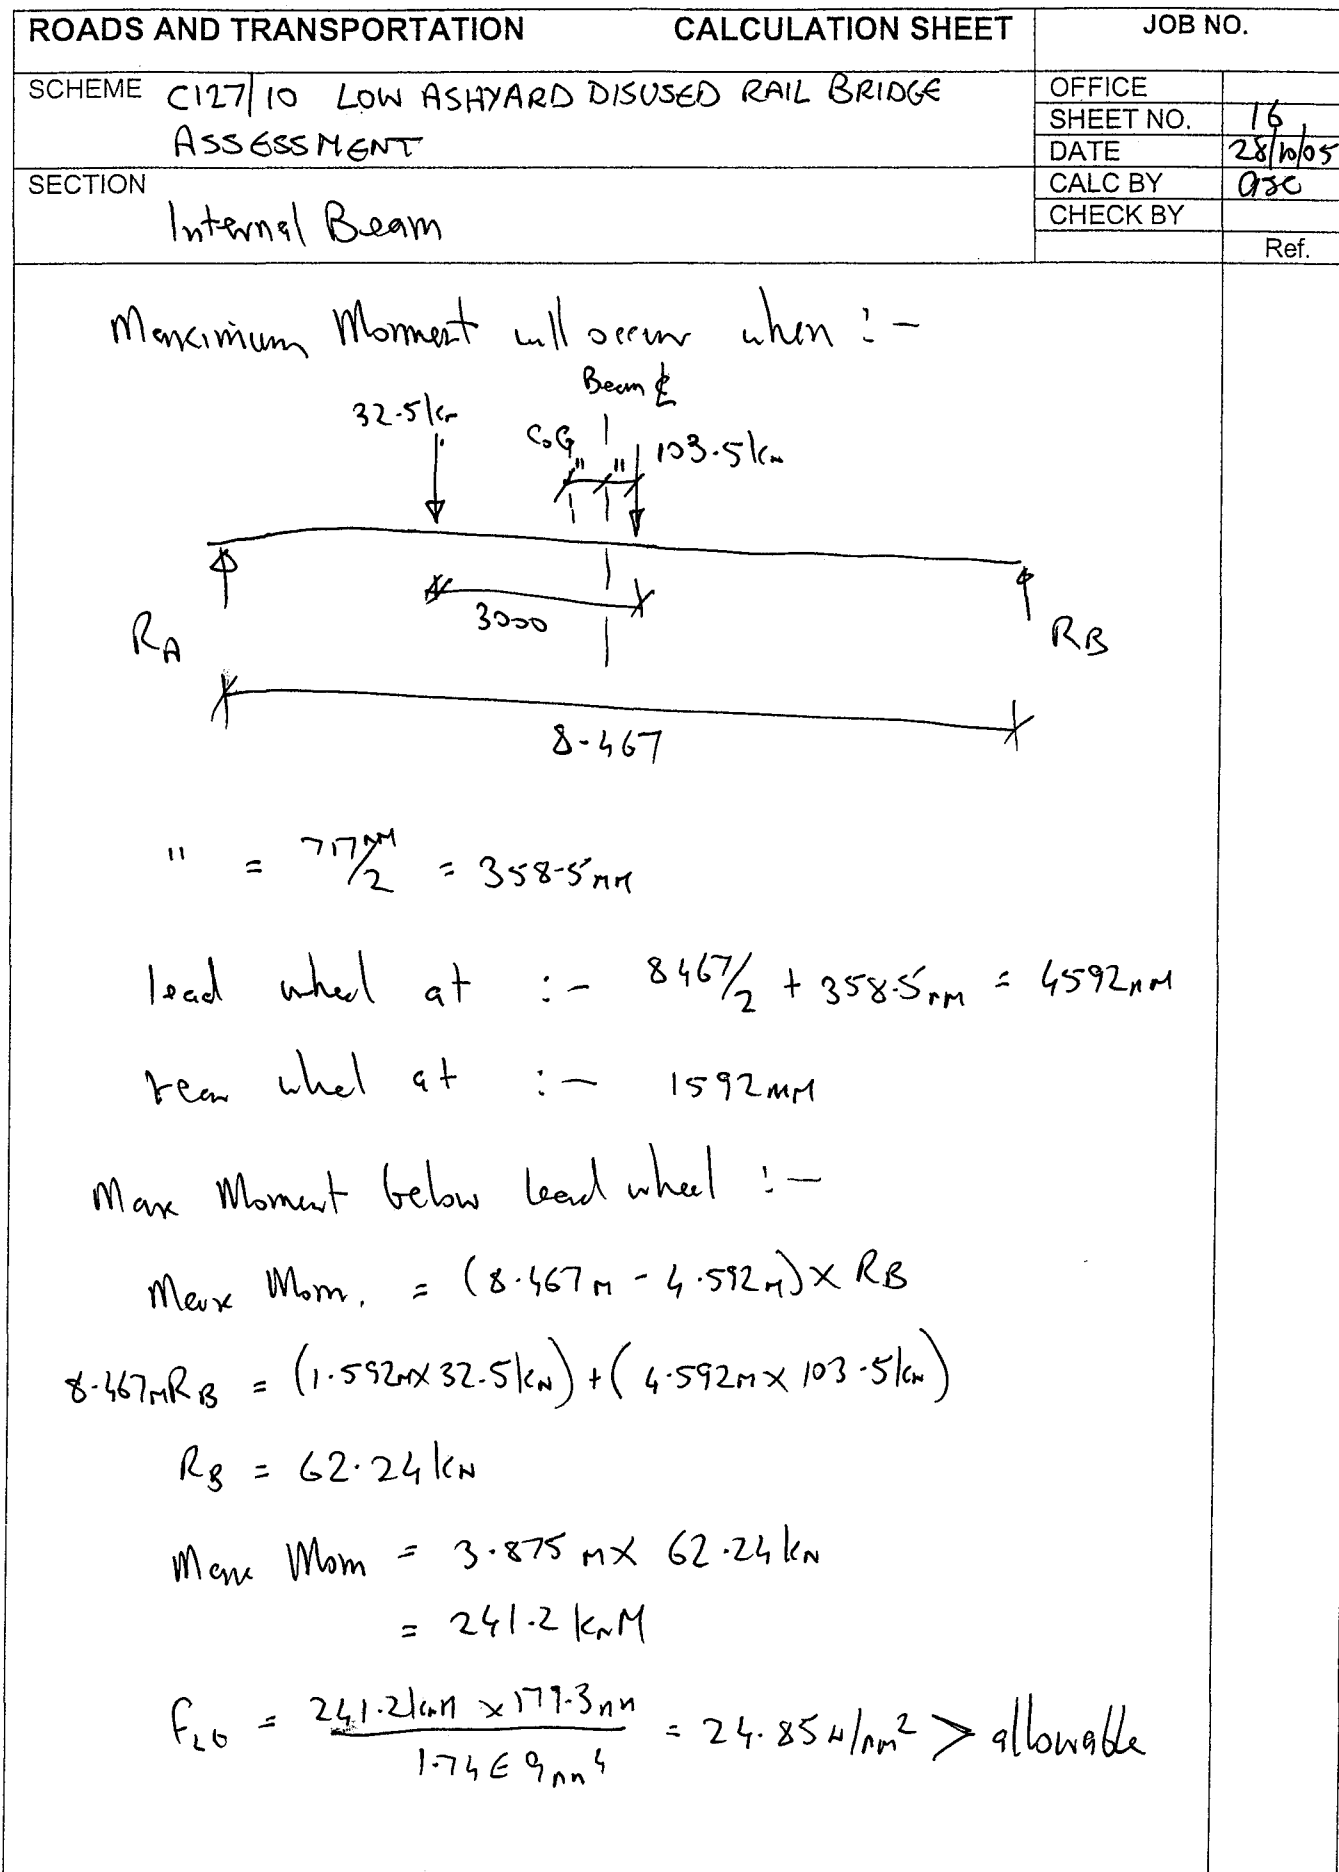 ROADS AND TRANSPORTATION CALCULATION SHEET JOB NO.
SCHEME C127/10 LOW ASHYARD DISUSED RAIL BRIDGE
ASSESSMENT
OFFICE
SHEET NO. 16
DATE 28/10/05
SECTION
Internal Beam
CALC BY asc
CHECK BY
Ref.
Maximum Moment will occur when :-
Beam ℄
32.5kN
C.G
103.5kN
" "
RA
3000
RB
8.467
" = 717mm/2 = 358.5mm
lead wheel at :- 8467/2 + 358.5mm = 4592mm
rear wheel at :- 1592mm
Max Moment below lead wheel :-
Max Mom. = (8.467m - 4.592m) x RB
8.467m RB = (1.592m x 32.5kN) + (4.592m x 103.5kN)
RB = 62.24kN
Max Mom = 3.875m x 62.24kN
= 241.2 kNM
fLD = 241.2kNm x 179.3mm / 1.74E9mm4 = 24.85N/mm2 > allowable